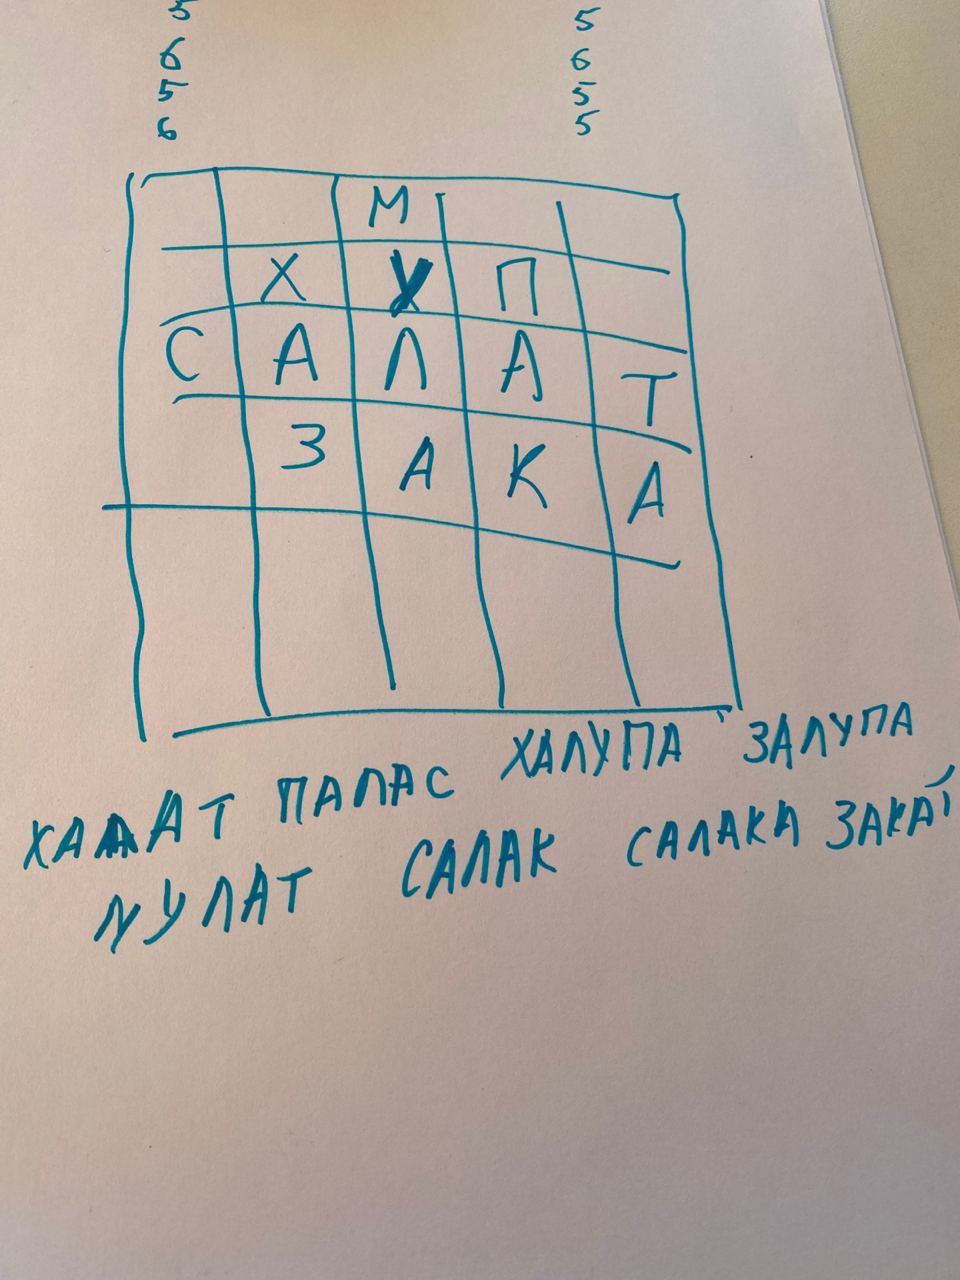 5 5
6 6
5 5
6 5
М
Х У П
С А Л А Т
З А К А
ХАЛАТ ПАЛАС ХАЛУПА ЗАЛУПА
МУЛАТ САЛАК САЛАКА ЗАКАТ